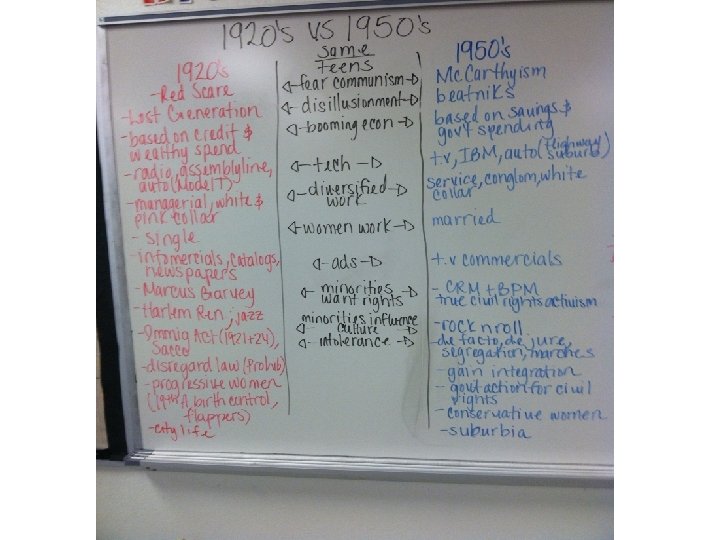 1920's VS 1950's
1920's
-Red Scare
-Lost Generation
-based on credit &
wealthy spend
-radio, assemblyline,
auto (Model T)-
-managerial, white &
pink collar
- single
-infomercials, catalogs,
newspapers
-Marcus Garvey
-Harlem Ren, jazz
-Immig Act (1921+24),
Sacco
-disregard law (Prohib)
-progressive women
(19th A, birth control,
flappers)
-city life
same
teens
fear communism
disillusionment
booming econ
tech
diversified
work
women work
ads
minorities
want rights
minorities influence
culture
intolerance
1950's
McCarthyism
beatniks
based on savings &
gov't spending
tv, IBM, auto (highway/
suburb)
service, conglom, white
collar
married
t.v commercials
- CRM + BPM
true civil rights activism
-rock n roll
-de facto, de jure,
segregation, marches
- gain integration
- govt action for civil
rights
- conservative women
-suburbia